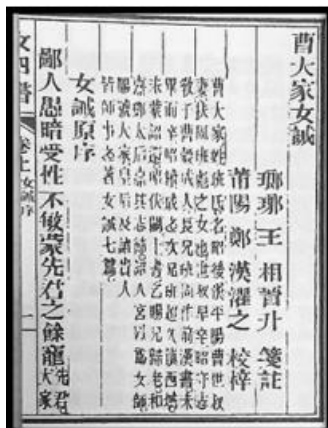 曹大家女誡
瑯琊王 相晋升 箋註
莆陽鄭 漢濯之 校梓
曹大家姓班氏名昭後漢平陽曹世叔
妻扶風班彪之女也世叔早卒昭守志
教子曹穀成人長兄班固作前漢書未
畢而卒昭續成之次兄班超久鎮西域
未蒙詔還昭伏闕上書乞賜兄歸老和
熹鄧太后嘉其志節詔入宮以為女師
賜號大家皇后及諸貴人
皆師事之著女誡七篇
女誡原序
鄙人愚暗受性不敏蒙先君之餘寵先君
大家
女四書
卷上 女誡序
一